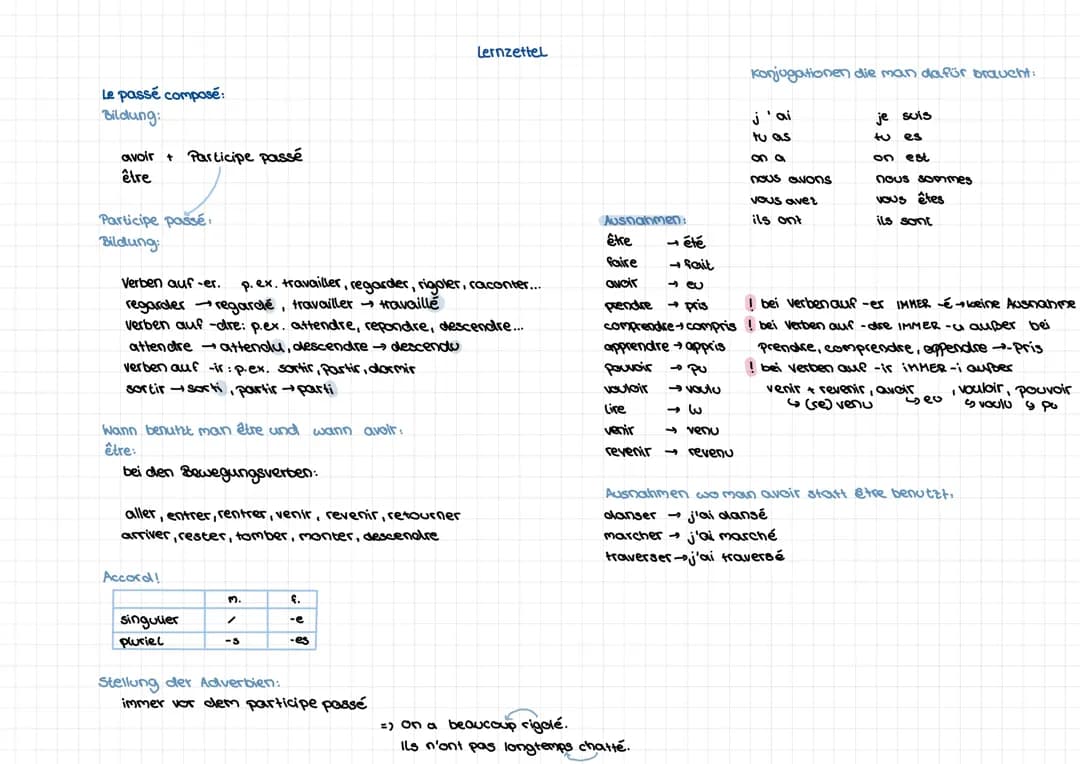 Lernzettel
Le passé composé:
Bildung:
avoir + Participe passé
être
Participe passé:
Bildung:
Verben auf -er. p.ex. travailler, regarder, rigoler, raconter...
regarder → regardé, travailler → travaillé
verben auf -dre: p.ex. attendre, repondre, descendre...
attendre → attendu, descendre → descendu
verben auf -ir: p.ex. sortir, partir, dormir
sortir → sorti, partir → parti
Wann benutzt man être und wann avoir:
être:
bei den Bewegungsverben:
aller, entrer, rentrer, venir, revenir, retourner
arriver, rester, tomber, monter, descendre
Accord!
m. f.
singulier / -e
pluriel -s -es
Stellung der Adverbien:
immer vor dem participe passé
=> on a beaucoup rigolé.
Ils n'ont pas longtemps chatté.
Konjugationen die man dafür braucht:
j'ai je suis
tu as tu es
on a on est
nous avons nous sommes
vous avez vous êtes
ils ont ils sont
Ausnahmen:
être → été
faire → fait
avoir → eu
prendre → pris
comprendre → compris
apprendre → appris
pouvoir → pu
vouloir → voulu
lire → lu
venir → venu
revenir → revenu
! bei Verben auf -er IMMER -é → keine Ausnahme
! bei Verben auf -dre IMMER -u außer bei
prendre, comprendre, appendre → -pris
! bei Verben auf -ir IMMER -i außer
venir + revenir, avoir, vouloir, pouvoir
↳ (re)venu ↳ eu ↳ voulu ↳ pu
Ausnahmen wo man avoir statt être benutzt:
danser → j'ai dansé
marcher → j'ai marché
traverser → j'ai traversé